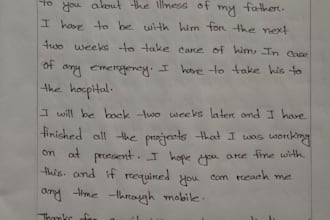 to you about the illness of my father.
I have to be with him for the next
two weeks to take care of him, In case
of any emergency. I have to take his to
the hospital.
I will be back two weeks later and I have
finished all the projects that I was working
on at present. I hope you are fine with
this. and if required you can reach me
any time through mobile.
Thanks for a